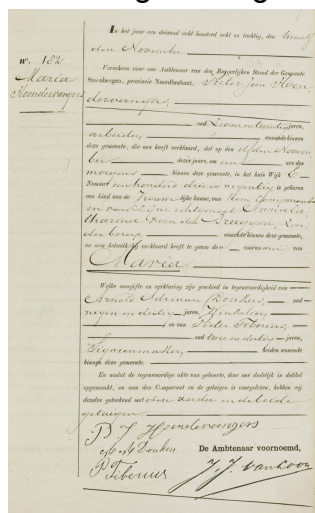 n°. 182
Maria
Hoendervangers
In het jaar een duizend acht honderd acht en tachtig, den twaalf
den November
Verscheen voor ons Ambtenaar van den Burgerlijken Stand der Gemeente
Steenbergen, provincie Noordbrabant, Pieter Jan Hoen
dervangers,
oud twee en twintig jaren,
arbeider, woonachtig binnen
deze gemeente, die ons heeft verklaard, dat op den elfden Novem
ber dezes jaars, om een ure des
morgens binnen deze gemeente, in het huis Wijk C
Nommer een honderd drie en negentig is geboren
een kind van de vrouwelijke kunne, van Hem Comparant
en van zijne echtgenoot
tharina van der zon
der beroep, woonachtig binnen deze gemeente,
en aan hetwelk hij verklaard heeft te geven den voornaam van
Maria
Welke aangifte en verklaring zijn geschied in tegenwoordigheid van
Arnold Adriaan Donken, oud
negen en dertig jaren, Winkelier,
en van Pieter Tiberius,
oud twee en dertig jaren,
Sigarenmaker, beiden wonende
binnen deze gemeente.
En nadat de tegenwoordige akte van geboorte, door ons dadelijk in dubbel
opgemaakt, en aan den Comparant en de getuigen is voorgelezen, hebben wij
dezelve geteekend met den vader en de beide
getuigen.
P J Hoendervangers
A A Donken
P Tiberius
De Ambtenaar voornoemd,
J. J. van Loon